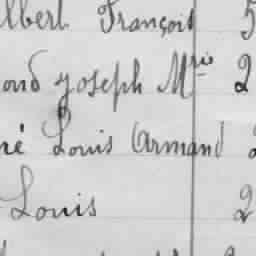 lbert François 5
ond Joseph Mrie 2
né Louis Armand 2
Louis 2